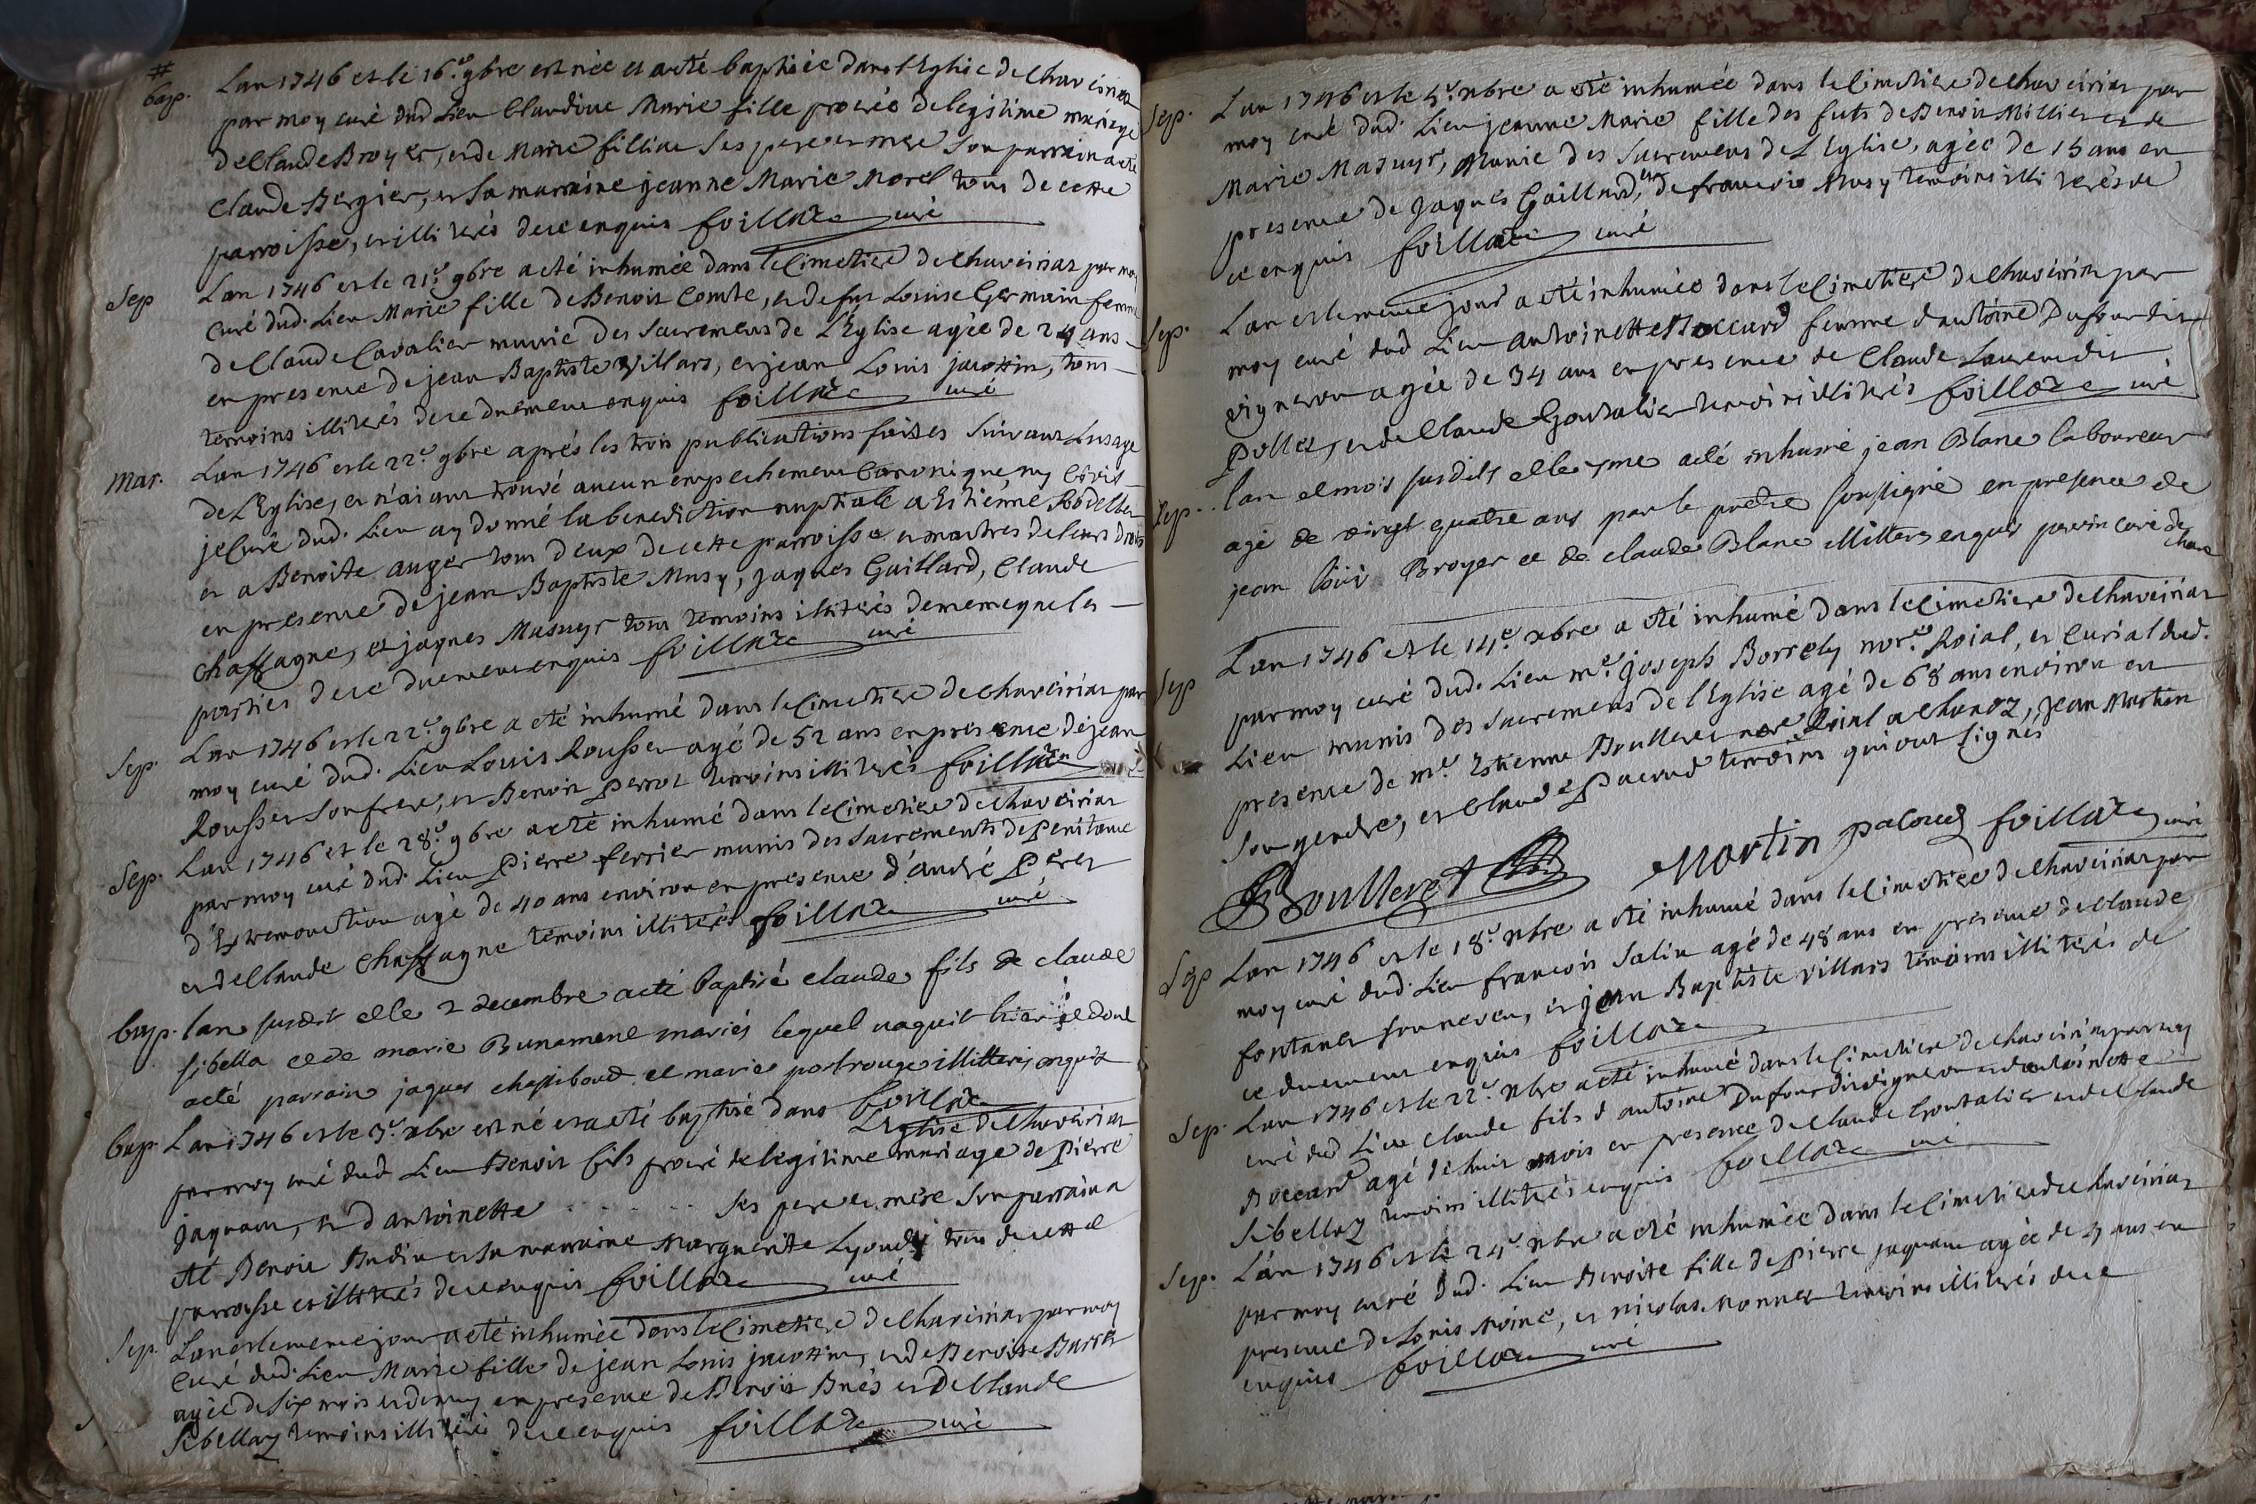 #
bap. Lan 1746 et le 16.e 9bre est née et a eté baptisée dans l'Eglise de Chaveiriat
par moy curé dud. Lieu Claudine Marie fille procréé de legitime mariage
de Claude Broyer, et de Marie filliou ses pere et mere Son parrain a eté
Claude Bergier, et sa marraine jeanne Marie Morel tous de cette
parroisse, et illiterés de ce enquis foillare curé
Sep Lan 1746 et le 21.e 9bre a eté inhumée dans le Cimetiere de Chaveiriat par moy
curé dud. Lieu Marie fille de Benoit Comte, et de fut Louise Germain femme
de Claude Cavalier munie des Sacremens de L'Eglise agée de 24 ans
en presence de jean Baptiste Villars, et jean Louis jacottin, tous
temoins illiterés de ce duement enquis foillare curé
Mar. Lan 1746 et le 22.e 9bre aprés les trois publications faites suivant Lusage
de L'Eglise, et n'aiant trouvé aucun empechement Canonique, ny Civil
je Curé dud. Lieu ay donné la benediction nuptiale a Estienne
et a Benoite auger tous deux de cette parroisse et maitres de leurs droits
en presence de jean Baptiste Musy, jaques Gaillard, Claude
Chassagne, et jaques Masuyr tous temoins illiterés de meme que les
parties de ce duement enquis foillare curé
Sep. Lan 1746 et le 22.e 9bre a eté inhumé dans le Cimetiere de Chaveiriat par
moy curé dud. Lieu Louis Rousset agé de 52 ans en presence de jean
Rousset son frere, et Benoit Perrot temoins illiterés foillare
Sep. Lan 1746 et le 28.e 9bre a eté inhumé dans le Cimetiere de Chaveiriat
par moy curé dud. Lieu Pierre ferrier munis des Sacrements de Penitence
d'Extremonction agé de 40 ans environ en presence d'andré Peret
et de Claude Chassagne temoins illiterés foillare curé
bap. lan susdit et le 2 decembre a eté Baptisé claude fils de claude
sibella et de marie Bunamene mariés lequel naquit hier et dont
a eté parrain jaques chassiboud et marie portrouge illitterés enquis
foillare
bap. Lan 1746 et le 3.e xbre est né et a eté baptisé dans L'Eglise de Chaveiriat
par moy curé dud. Lieu Benoit fils procréé de legitime mariage de Pierre
jaquan, et d'antoinette . . . . . . ses pere et mere Son parrain a
eté Benoit Budin et sa marraine Marguerite tous de cette
parroisse et illiterés de ce enquis foillare curé
Sep. Lan et le meme jour a eté inhumée dans le Cimetiere de Chaveiriat par moy
Curé dud. Lieu Marie fille de jean Louis jacottin, et de Benoite
agée de six mois et demy en presence de Benoit et de Claude
Sibellaz temoins illiterés de ce enquis foillare curé
Sep. Lan 1746 et le 4.e xbre a eté inhumée dans le Cimetiere de Chaveiriat par
moy curé dud. Lieu jeanne Marie fille des futs de Benoit Millieret de
Marie Masuyr, Munie des Sacremens de L'Eglise, agée de 15 ans en
presence de jaques Gaillard, et de francois Musy temoins illiterés de
ce enquis foillare curé
Sep. Lan et le meme jour a eté inhumée dans le Cimetiere de Chaveiriat par
moy curé dud. Lieu antoinette Boccard femme d'antoine Dufour dit
vigneron agée de 34 ans en presence de Claude Laurendit
Pollet, et de Claude Gonsalier temoins illiterés foillare curé
Sep. lan et mois susdits et le 5me a eté inhumé jean Blanc laboureur
agé de vingt quatre ans par le prêtre soussigné en presence de
jean Loüis Broyer et de claude Blanc illitterés enquis curé de
chave
Sep Lan 1746 et le 14.e xbre a eté inhumé dans le Cimetiere de Chaveiriat
par moy curé dud. Lieu m.e joseph Borrely nor.e Roial, et Curial dud.
Lieu munis des Sacremens de l'Eglise agé de 68 ans environ en
presence de m.e Estienne Boulleret nore Roial a Chanoz, jean Martin
son gendre, et Claude Pacoud temoins qui ont signés
Boulleret Martin pacoud foillare curé
Sep Lan 1746 et le 18.e xbre a eté inhumé dans le Cimetiere de Chaveiriat par
moy curé dud. Lieu francois Salin agé de 48 ans en presence de Claude
fontanet son neveu, et jean Baptiste villars temoins illiterés de
ce duement enquis foillare
Sep. Lan 1746 et le 22.e xbre a eté inhumé dans le Cimetiere de Chaveiriat par moy
curé dud. Lieu Claude fils d'antoine Dufour dit vigneron et d'antoinette
Boccard agé de huit mois en presence de Claude Gonsalier et de Claude
Sibellaz temoins illiterés enquis foillare curé
Sep. Lan 1746 et le 24.e xbre a eté inhumée dans le Cimetiere de Chaveiriat
par moy curé dud. Lieu Benoite fille de Pierre jaquan agée de 4 ans en
presence de Louis Moine, et nicolas Monnet temoins illiterés de ce
enquis foillare curé